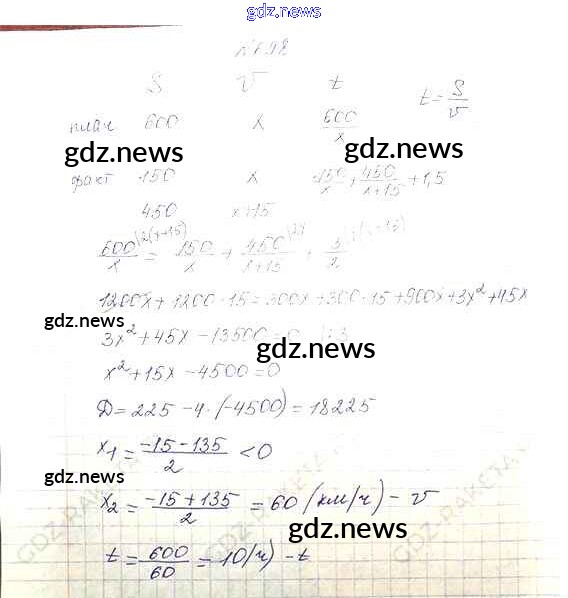 gdz.news
№698
S v t t = S/v
план 600 x 600/x
gdz.news gdz.news
факт 150 x 150/x + 450/(x+15) + 1,5
450 x+15
600/x |2(x+15) = 150/x + 450/(x+15) |2x + 3/2 |x(x+15)
1200x + 1200·15 = 300x + 300·15 + 900x + 3x² + 45x
gdz.news
3x² + 45x - 13500 = 0 |:3
gdz.news
x² + 15x - 4500 = 0
Д = 225 - 4·(-4500) = 18225
x₁ = (-15-135)/2 < 0
gdz.news
x₂ = (-15+135)/2 = 60 (км/ч) - v
gdz.news
t = 600/60 = 10 (ч) - t